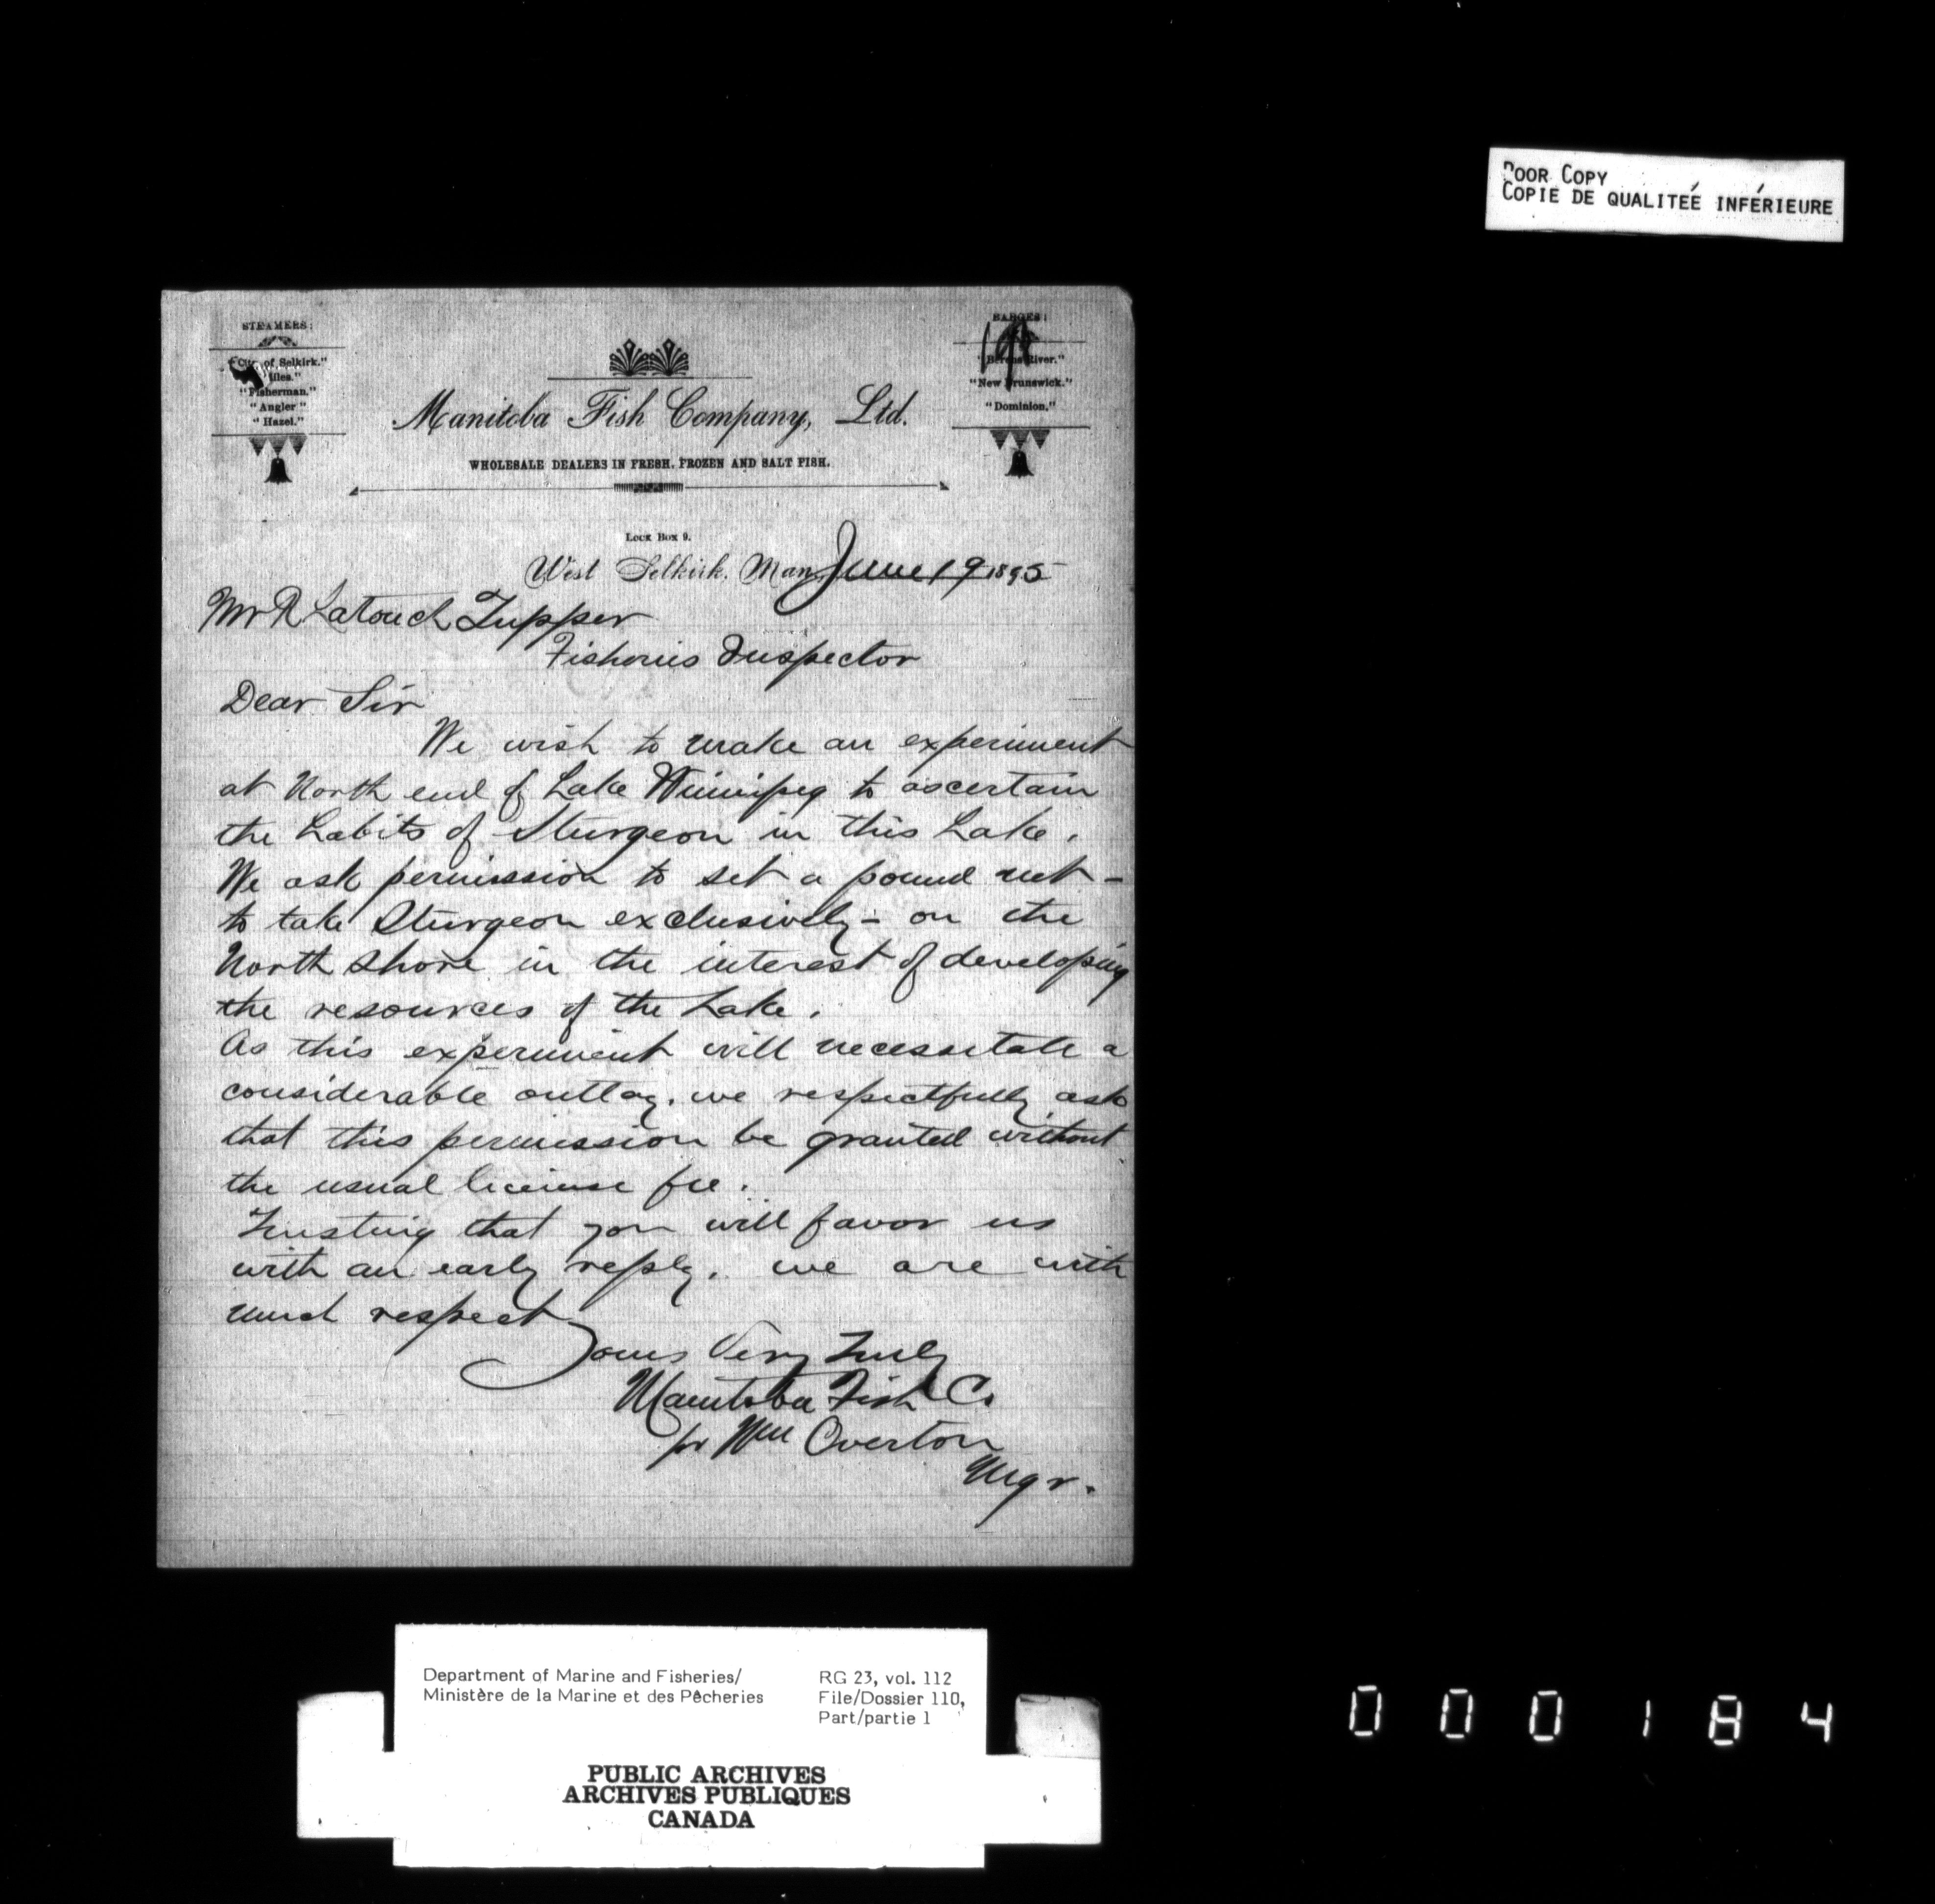 POOR COPY
COPIE DE QUALITEÉ INFÉRIEURE
STEAMERS:
of Selkirk."
"Fisherman."
"Angler"
"Hazel."
BARGES:
"Berens River."
"New Brunswick."
"Dominion."
Manitoba Fish Company, Ltd.
WHOLESALE DEALERS IN FRESH, FROZEN AND SALT FISH.
LOCK BOX 9.
West Selkirk, Man, June 19 1895
Mr R Latouch Tupper
Fisheries Inspector
Dear Sir
We wish to make an experiment
at North end of Lake Winnipeg to ascertain
the habits of Sturgeon in this Lake.
We ask permission to set a pound net -
to take Sturgeon exclusively - on the
North shore in the interest of developing
the resources of the Lake.
As this experiment will necessitate a
considerable outlay, we respectfully ask
that this permission be granted without
the usual license fee.
Trusting that you will favor us
with an early reply, we are with
much respect
Yours Very Truly
Manitoba Fish Co
pr Wm Overton
Mgr.
Department of Marine and Fisheries/
Ministère de la Marine et des Pêcheries
RG 23, vol. 112
File/Dossier 110,
Part/partie 1
PUBLIC ARCHIVES
ARCHIVES PUBLIQUES
CANADA
000184